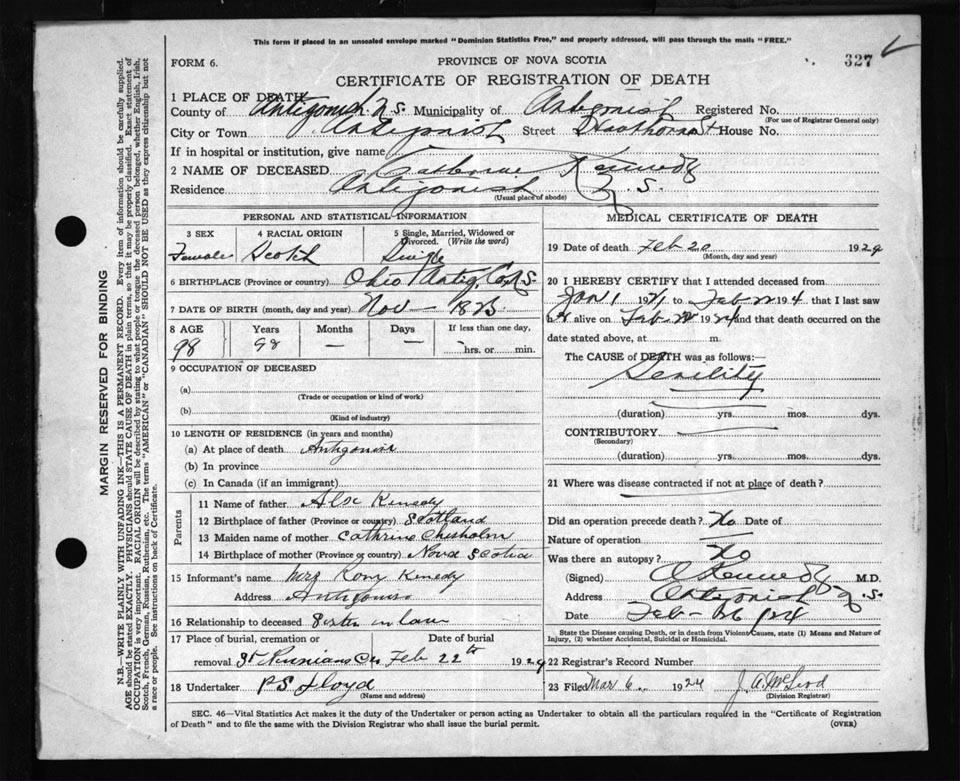 This form if placed in an unsealed envelope marked "Dominion Statistics Free," and properly addressed, will pass through the mails "FREE."
FORM 6.
PROVINCE OF NOVA SCOTIA
327
CERTIFICATE OF REGISTRATION OF DEATH
1 PLACE OF DEATH
County of Antigonish N.S. Municipality of Antigonish Registered No.
(For use of Registrar General only)
City or Town Antigonish Street Hawthorne St House No.
If in hospital or institution, give name
2 NAME OF DECEASED Catherine Kennedy
Residence Antigonish N.S.
(Usual place of abode)
PERSONAL AND STATISTICAL INFORMATION
3 SEX 4 RACIAL ORIGIN 5 Single, Married, Widowed or Divorced. (Write the word)
Female Scotch Single
6 BIRTHPLACE (Province or country) Ohio Antig. Co. N.S.
7 DATE OF BIRTH (month, day and year) Nov —
8 AGE Years Months Days If less than one day,
98 98 — — hrs. or min.
9 OCCUPATION OF DECEASED
(a)
(Trade or occupation or kind of work)
(b)
(Kind of industry)
10 LENGTH OF RESIDENCE (in years and months)
(a) At place of death Antigonish
(b) In province
(c) In Canada (if an immigrant)
Parents
11 Name of father Alex Kenedy
12 Birthplace of father (Province or country) Scotland
13 Maiden name of mother Cathrine Chisholm
14 Birthplace of mother (Province or country) Nova Scotia
15 Informant's name Mrs Rory Kenedy
Address Antigonish
16 Relationship to deceased Sister in law
17 Place of burial, cremation or removal Date of burial
St Ninians Feb 22th 192
18 Undertaker P.S. Floyd
(Name and address)
MEDICAL CERTIFICATE OF DEATH
19 Date of death Feb 20 192
(Month, day and year)
20 I HEREBY CERTIFY that I attended deceased from
Jan 1 to Feb that I last saw
h alive on Feb 1924 and that death occurred on the
date stated above, at m.
The CAUSE of DEATH was as follows:—
Senility
(duration) yrs. mos. dys.
CONTRIBUTORY
(Secondary)
(duration) yrs. mos. dys.
21 Where was disease contracted if not at place of death?
Did an operation precede death? No Date of
Nature of operation
Was there an autopsy? No
(Signed) Kennedy M.D.
Address Antigonish N.S.
Date Feb
State the Disease causing Death, or in death from Violent Causes, state (1) Means and Nature of
Injury, (2) whether Accidental, Suicidal or Homicidal.
22 Registrar's Record Number
23 Filed Mar 6 1924 J. A. McLeod
(Division Registrar)
SEC. 46—Vital Statistics Act makes it the duty of the Undertaker or person acting as Undertaker to obtain all the particulars required in the "Certificate of Registration
of Death" and to file the same with the Division Registrar who shall issue the burial permit.
(OVER)
MARGIN RESERVED FOR BINDING
N.B.—WRITE PLAINLY WITH UNFADING INK—THIS IS A PERMANENT RECORD. Every item of information should be carefully supplied.
AGE should be stated EXACTLY. PHYSICIANS should STATE CAUSE OF DEATH in plain terms, so that it may be properly classified. Exact statement of
OCCUPATION is very important. RACIAL ORIGIN will be described by stating to what people or tongue the deceased person belonged, whether English, Irish,
Scotch, French, German, Russian, Ruthenian, etc. The terms "AMERICAN" or "CANADIAN" SHOULD NOT BE USED as they express citizenship but not
a race or people. See instructions on back of Certificate.